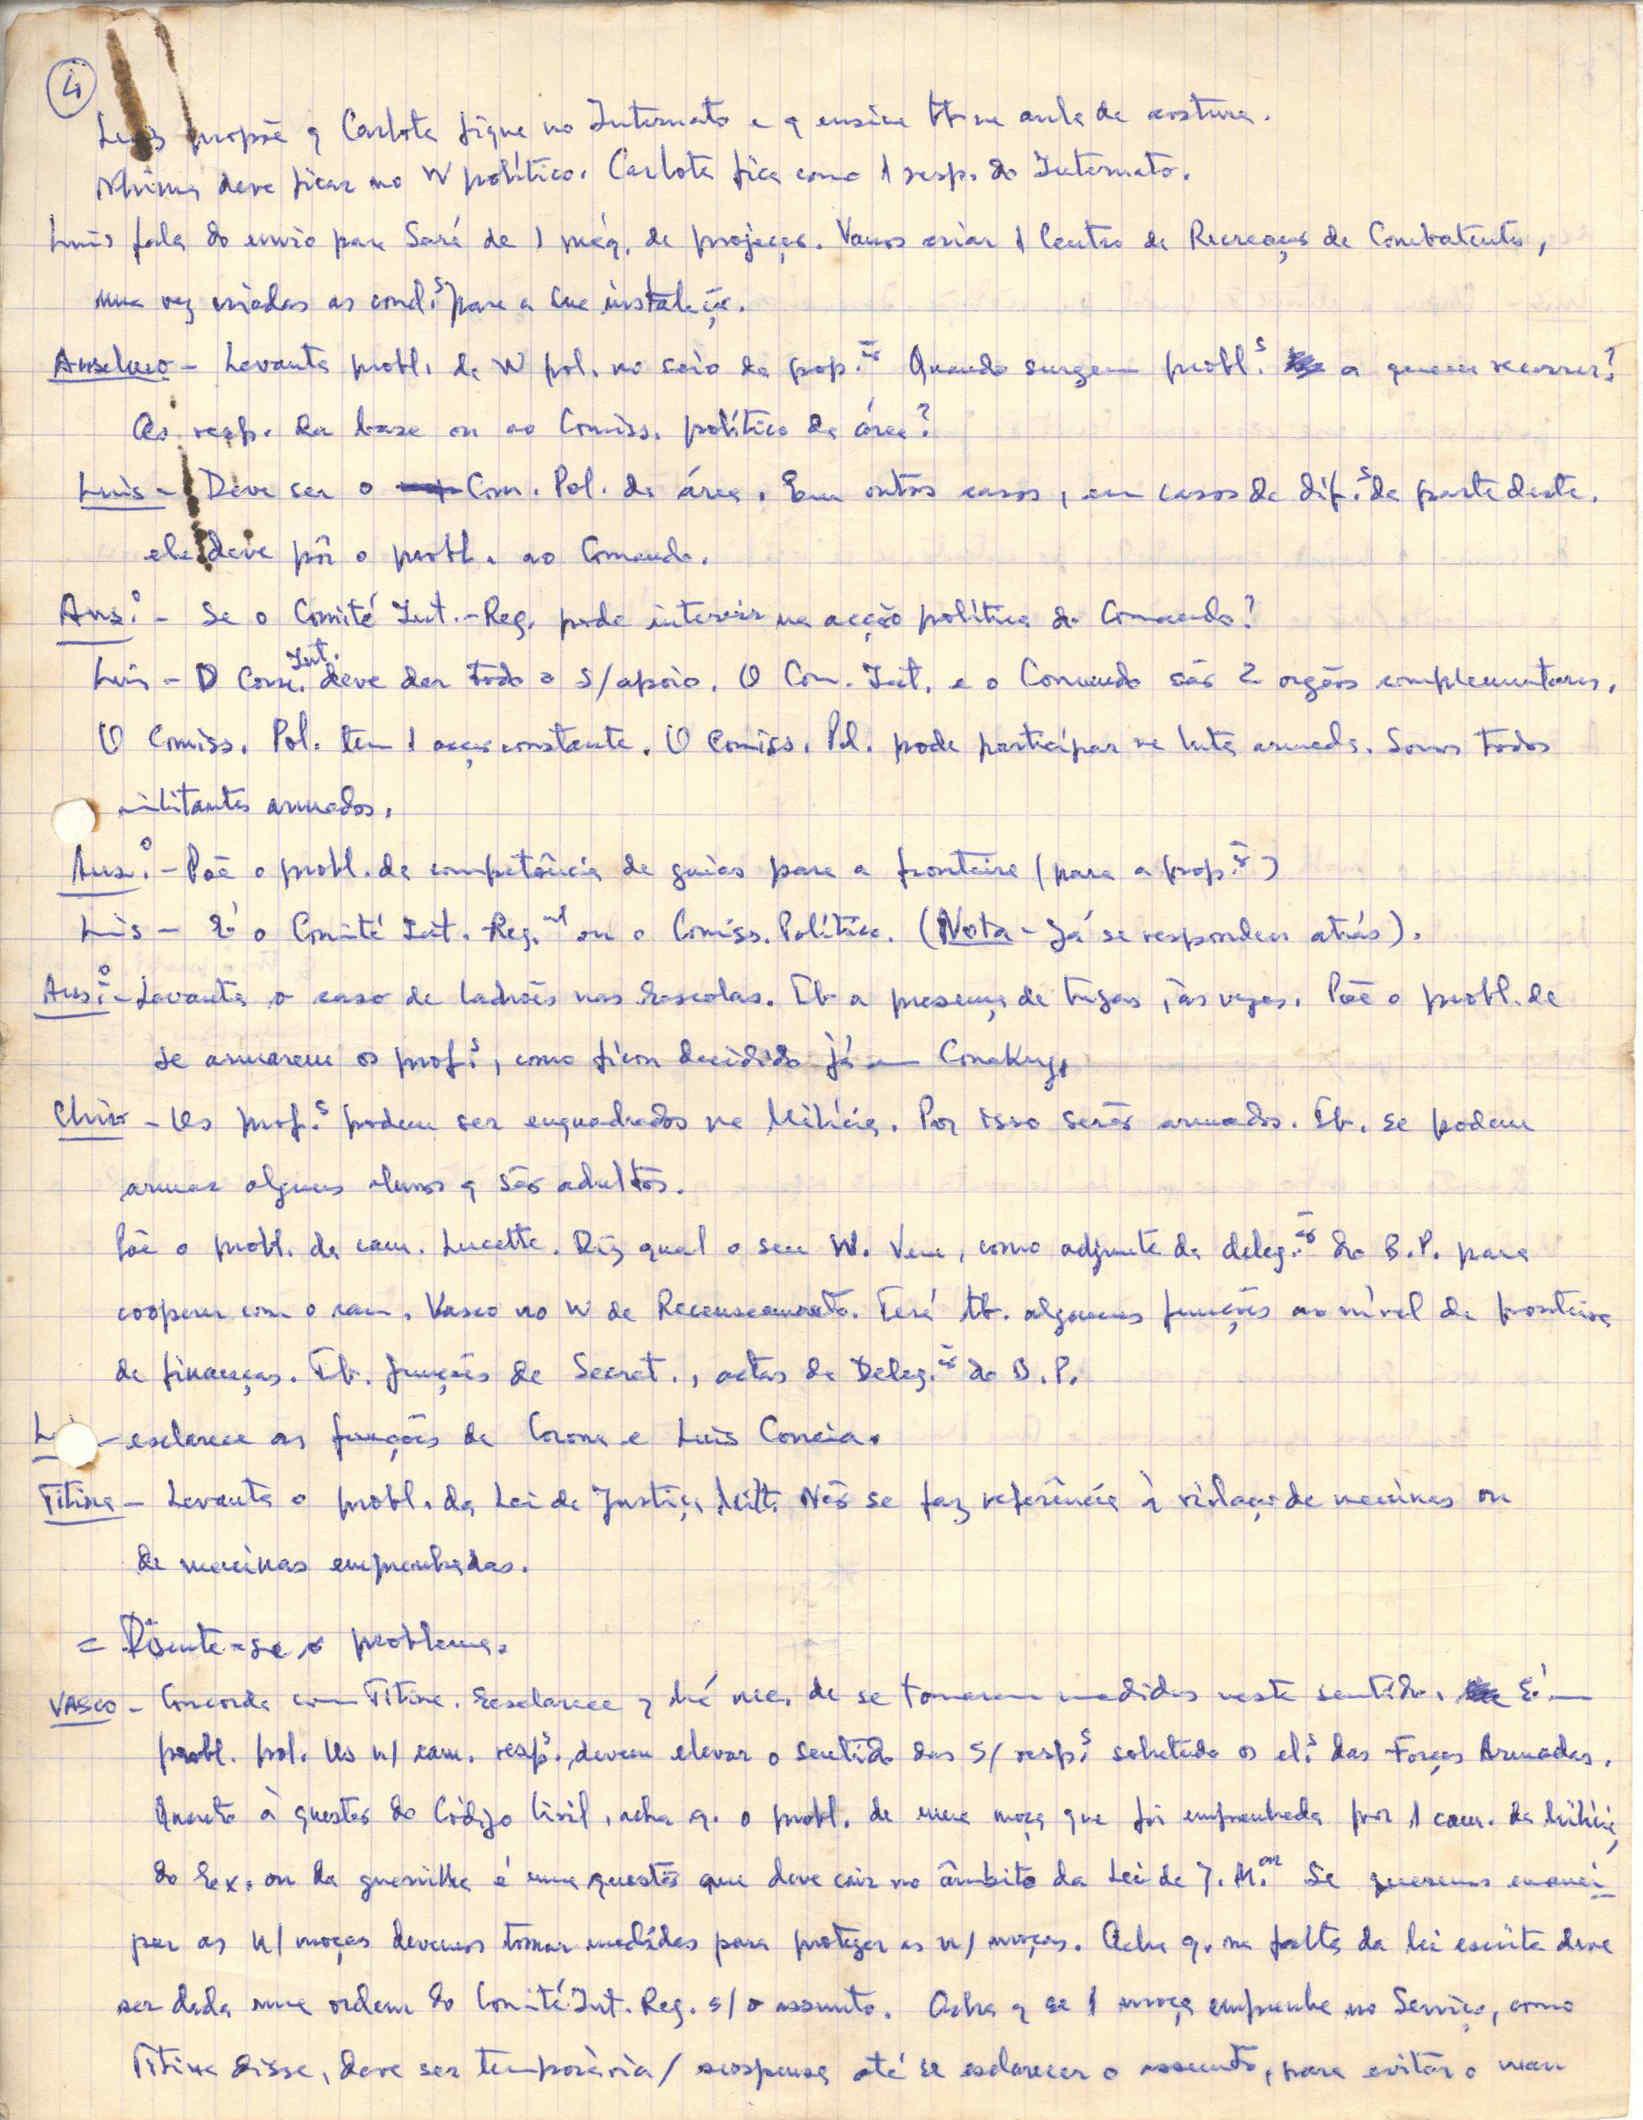 4
Luís propõe q Carlota fique no Internato e q ensine tb na aula de costura.
deve ficar no W político. Carlota fica como 1 resp. do Internato.
Luís fala do envio para Sará de 1 máq. de projecção. Vamos criar 1 Centro de Recreação de Combatentes,
uma vez criadas as cond.s para a sua instalação.
Anselmo - Levanta probl. do W pol. no seio da pop.ão Quando surgem probl.s a quem recorrer?
Ao resp. da base ou ao Comiss. político da área?
Luís - Deve ser o Com. Pol. da área. Em outros casos, em casos de dif.s da parte deste,
ele deve pôr o probl. ao Comando.
Ans.o - Se o Comité Int.-Reg. pode intervir na acção política do Comando?
Luís - O Com. Int. deve dar todo o s/apoio. O Com. Int. e o Comando são 2 orgãos complementares.
O Comiss. Pol. tem 1 acção constante. O Comiss. Pol. pode participar na luta armada. Somos todos
militantes armados.
Ans.o - Põe o probl. da competência de guias para a fronteira (para a pop.ão)
Luís - É o Comité Int. Reg.al ou o Comiss. Político. (Nota - Já se respondeu atrás).
Ans.o - Levanta o caso de ladrões nas Escolas. Tb a presença de tugas, às vezes. Põe o probl. de
se armarem os prof.s, como ficou decidido já em Conakry.
Chico - Os prof.s podem ser enquadrados na Milícia. Por isso serão armados. Tb. se podem
armar alguns alunos q são adultos.
Põe o probl. da cam. Lucette. Diz qual o seu W. Vem, como adjunta da deleg.ão do B.P. para
cooperar com o cam. Vasco no W de Recenseamento. Terá tb. algumas funções ao nível de fronteira
de finanças. Tb. funções de Secret., actas da Deleg.ão do B.P.
L - esclarece as funções de Corona e Luís Correia.
Titina - Levanta o probl. da Lei de Justiça Milit. Não se faz referência à violação de meninas ou
de meninas emprenhadas.
= Discute-se o problema.
VASCO - Concorda com Titina. Esclarece q há nec. de se tomarem medidas neste sentido. É um
probl. pol. Os n/ cam. resp.s devem elevar o sentido das s/ resp.s sobretudo os el.s das Forças Armadas.
Quanto à questão do Código Civil, acha q. o probl. de uma moça que foi emprenhada por 1 cam. da Milícia,
do Ex. ou da guerrilha é uma questão que deve cair no âmbito da Lei de J. M.ar Se queremos emanci-
par as n/ moças devemos tomar medidas para proteger as n/ moças. Acha q. na falta da lei escrita deve
ser dada uma ordem do Comité Int. Reg. s/ o assunto. Acha q se 1 moça emprenha no Serviço, como
Titina disse, deve ser temporària/ suspensa até se esclarecer o assunto, para evitar o mau